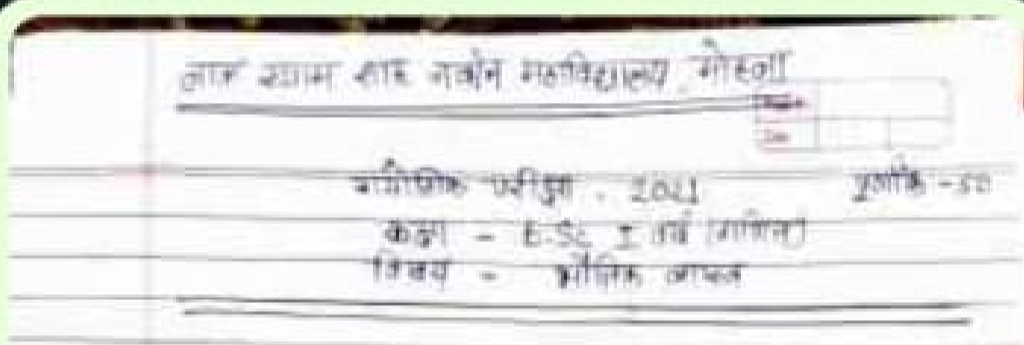 लाल श्याम शाह नवीन महाविद्यालय मोहला
प्रायोगिक परीक्षा - 2021 पूर्णांक - 50
कक्षा - B.Sc I वर्ष (गणित)
विषय - भौतिक शास्त्र